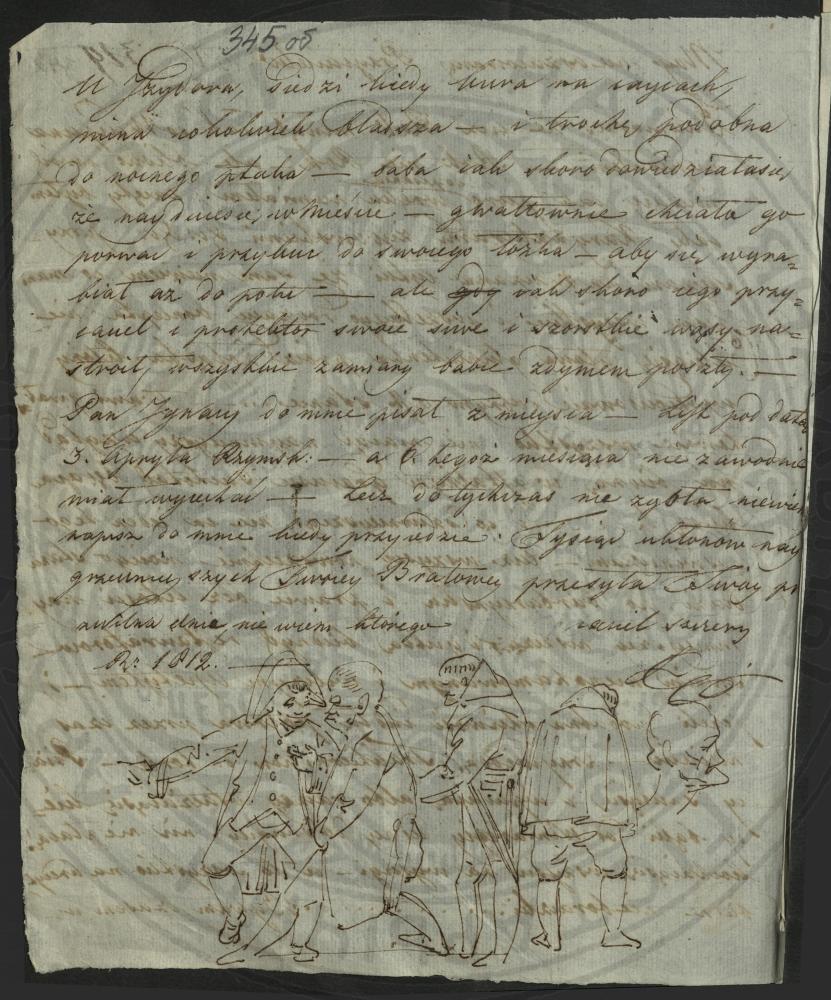 345 об
U Jzydora, siedzi kiedy kura na iaycach,
mina cokolwiek bladsza — i trochę podobna
do nocnego ptaka — baba iak skoro dowiedziałasię,
że nayduiesię w mieście — gwałtownie chciała go
porwać i przykuć do swoiego łóżka — aby się wyra=
biał aż do potu — ale gdy iak skoro iego przy=
iaciel i protektor swoie siwe i szorstkie wąsy na=
stroił, wszystkie zamiary babie zdymem poszły. —
Pan Jgnacy do mnie pisał z mieysca — List pod datą
3. Apryla Rzymsk: — a 6 tegoż miesiąca nie zawodnie
miał wyiechać — Lecz dotychczas nie zybła niewiem
napisz do mnie kiedy przyiedzie. Tysiąc ukłonów nay
grzecznieyszych Twoiey Bratowey przesyła Twóy pr
zwilna dnia nie wiem którego iaciel szczery
Rr 1812.